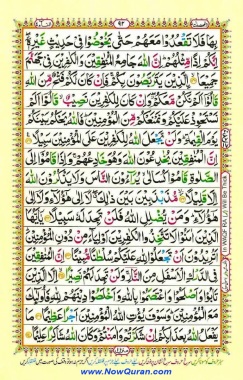 بِهَا فَلَا تَقْعُدُوْا مَعَهُمْ حَتّٰى يَخُوْضُوْا فِىْ حَدِيْثٍ غَيْرِهٖۤ
اِنَّكُمْ اِذًا مِّثْلُهُمْ اِنَّ اللّٰهَ جَامِعُ الْمُنٰفِقِيْنَ وَالْكٰفِرِيْنَ فِىْ جَهَنَّمَ
جَمِيْعًا الَّذِيْنَ يَتَرَبَّصُوْنَ بِكُمْ فَاِنْ كَانَ لَكُمْ فَتْحٌ مِّنَ اللّٰهِ
قَالُوْۤا اَلَمْ نَكُنْ مَّعَكُمْ وَاِنْ كَانَ لِلْكٰفِرِيْنَ نَصِيْبٌ قَالُوْۤا اَلَمْ
نَسْتَحْوِذْ عَلَيْكُمْ وَنَمْنَعْكُمْ مِّنَ الْمُؤْمِنِيْنَ فَاللّٰهُ يَحْكُمُ بَيْنَكُمْ يَوْمَ
الْقِيٰمَةِ وَلَنْ يَّجْعَلَ اللّٰهُ لِلْكٰفِرِيْنَ عَلَى الْمُؤْمِنِيْنَ سَبِيْلًا
اِنَّ الْمُنٰفِقِيْنَ يُخٰدِعُوْنَ اللّٰهَ وَهُوَ خَادِعُهُمْ وَاِذَا قَامُوْۤا اِلَى
الصَّلٰوةِ قَامُوْا كُسَالٰى يُرَآءُوْنَ النَّاسَ وَلَا يَذْكُرُوْنَ اللّٰهَ
اِلَّا قَلِيْلًا مُّذَبْذَبِيْنَ بَيْنَ ذٰلِكَ لَاۤ اِلٰى هٰۤؤُلَآءِ وَلَاۤ اِلٰى
هٰۤؤُلَآءِ وَمَنْ يُّضْلِلِ اللّٰهُ فَلَنْ تَجِدَ لَهٗ سَبِيْلًا يٰۤاَيُّهَا
الَّذِيْنَ اٰمَنُوْا لَا تَتَّخِذُوا الْكٰفِرِيْنَ اَوْلِيَآءَ مِنْ دُوْنِ الْمُؤْمِنِيْنَ
اَتُرِيْدُوْنَ اَنْ تَجْعَلُوْا لِلّٰهِ عَلَيْكُمْ سُلْطٰنًا مُّبِيْنًا اِنَّ الْمُنٰفِقِيْنَ
فِى الدَّرْكِ الْاَسْفَلِ مِنَ النَّارِ وَلَنْ تَجِدَ لَهُمْ نَصِيْرًا اِلَّا الَّذِيْنَ
تَابُوْا وَاَصْلَحُوْا وَاعْتَصَمُوْا بِاللّٰهِ وَاَخْلَصُوْا دِيْنَهُمْ لِلّٰهِ فَاُولٰٓئِكَ
مَعَ الْمُؤْمِنِيْنَ وَسَوْفَ يُؤْتِ اللّٰهُ الْمُؤْمِنِيْنَ اَجْرًا عَظِيْمًا مَا
يَفْعَلُ اللّٰهُ بِعَذَابِكُمْ اِنْ شَكَرْتُمْ وَاٰمَنْتُمْ وَكَانَ اللّٰهُ شَاكِرًا عَلِيْمًا
www.NowQuran.com